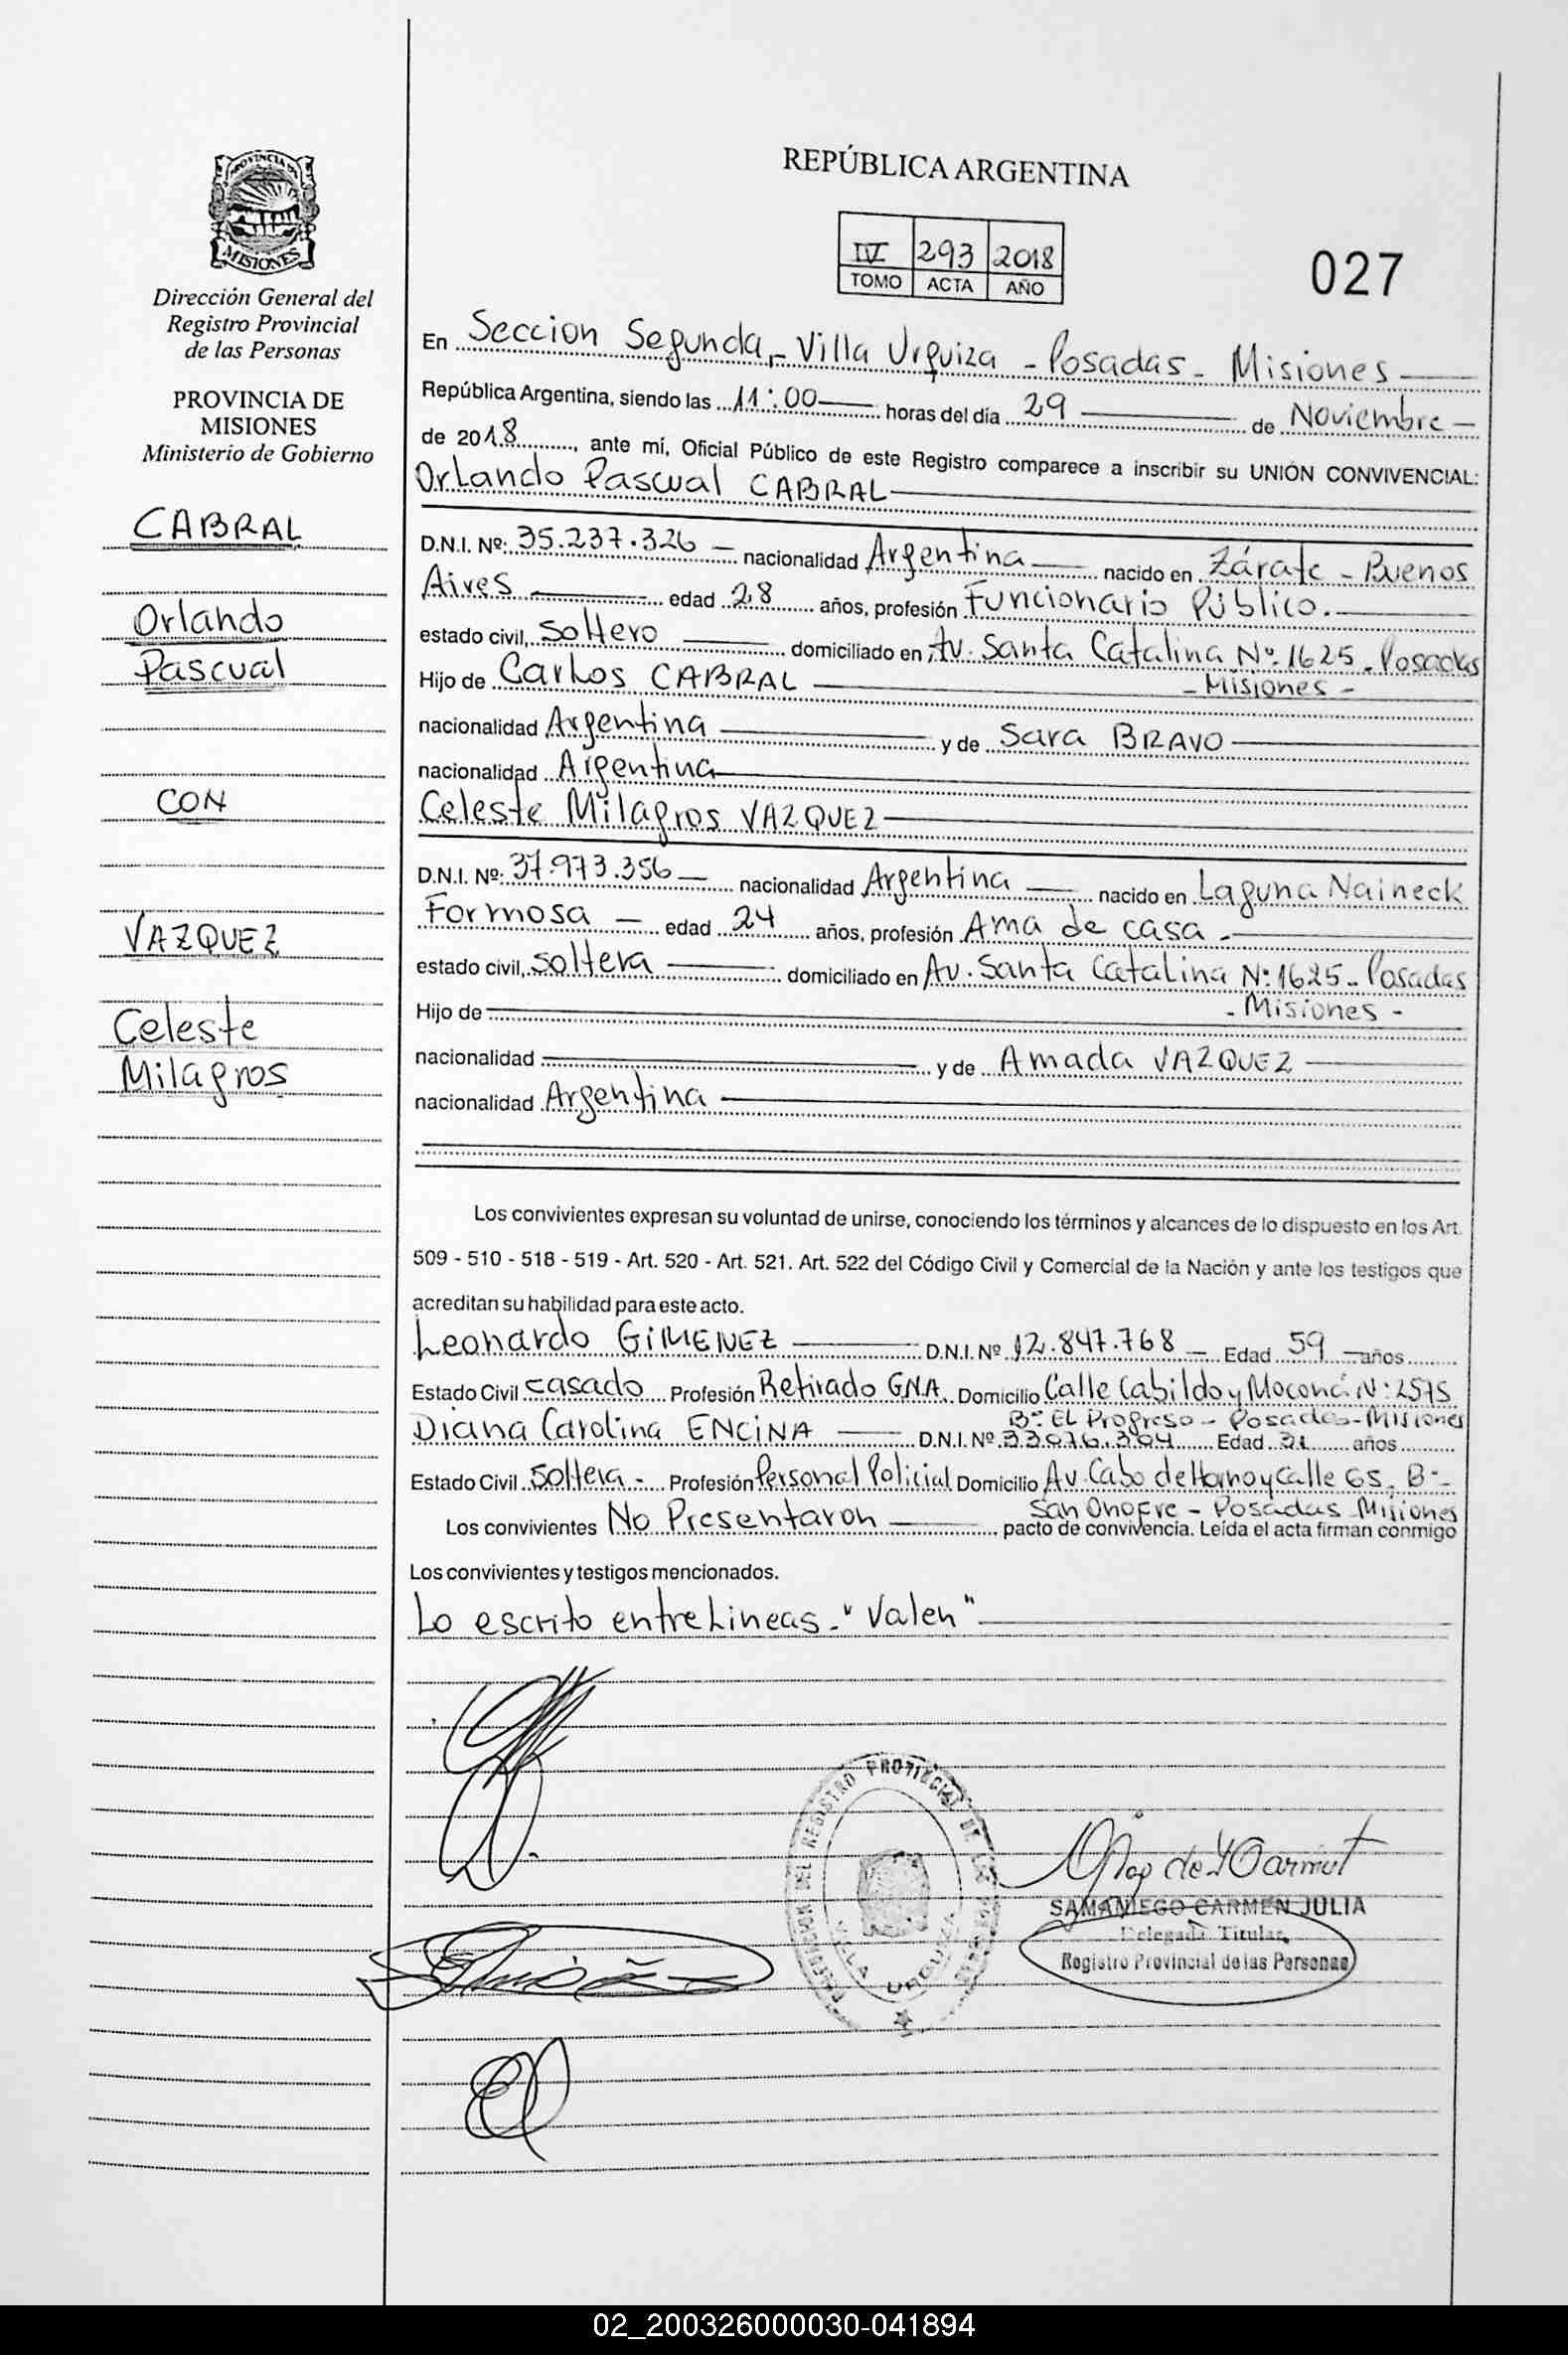 PROVINCIA DE
MISIONES
Dirección General del
Registro Provincial
de las Personas
PROVINCIA DE
MISIONES
Ministerio de Gobierno
CABRAL
Orlando
Pascual
CON
VAZQUEZ
Celeste
Milagros
REPÚBLICA ARGENTINA
IV 293 2018
TOMO ACTA AÑO
027
En Seccion Segunda - Villa Urquiza - Posadas - Misiones
República Argentina, siendo las 11:00 horas del día 29 de Noviembre
de 2018, ante mí, Oficial Público de este Registro comparece a inscribir su UNIÓN CONVIVENCIAL:
Orlando Pascual CABRAL
D.N.I. Nº: 35.237.326 nacionalidad Argentina nacido en Zárate - Buenos
Aires edad 28 años, profesión Funcionario Público.
estado civil, soltero domiciliado en Av. Santa Catalina Nº 1625 - Posadas
- Misiones -
Hijo de Carlos CABRAL
nacionalidad Argentina y de Sara BRAVO
nacionalidad Argentina
Celeste Milagros VAZQUEZ
D.N.I. Nº: 37.973.356 nacionalidad Argentina nacido en Laguna Naineck
Formosa edad 24 años, profesión Ama de casa.
estado civil, soltera domiciliado en Av. Santa Catalina Nº 1625 - Posadas
- Misiones -
Hijo de
nacionalidad y de Amada VAZQUEZ
nacionalidad Argentina
Los convivientes expresan su voluntad de unirse, conociendo los términos y alcances de lo dispuesto en los Art.
509 - 510 - 518 - 519 - Art. 520 - Art. 521. Art. 522 del Código Civil y Comercial de la Nación y ante los testigos que
acreditan su habilidad para este acto.
Leonardo GIMENEZ D.N.I. Nº 12.847.768 Edad 59 años
Estado Civil casado Profesión Retirado G.N.A. Domicilio Calle Cabildo y Moconá Nº 2575
Bº El Progreso - Posadas - Misiones
Diana Carolina ENCINA D.N.I. Nº 33.076.304 Edad 31 años
Estado Civil Soltera - Profesión Personal Policial Domicilio Av. Cabo de Horno y Calle 65, Bº
San Onofre - Posadas Misiones
Los convivientes No Presentaron pacto de convivencia. Leída el acta firman conmigo
Los convivientes y testigos mencionados.
Lo escrito entre Lineas - "Valen"
VILLA URQUIZA
SAMANIEGO CARMEN JULIA
Delegada Titular
Registro Provincial de las Personas
02_200326000030-041894